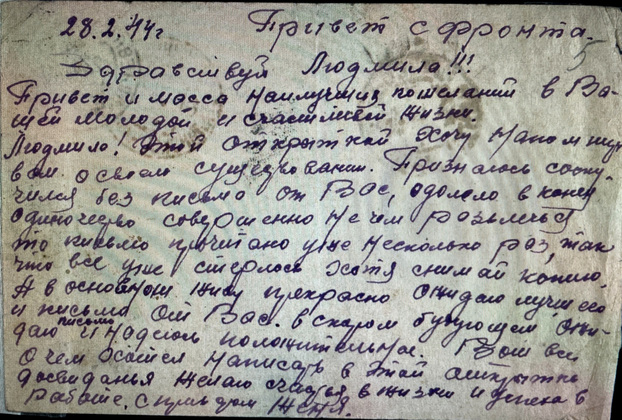 28.2.44г Привет с фронта.
Здравствуй Людмила!!!
Привет и масса наилучших пожеланий в Ва-
шей молодой и счастливой жизни.
Людмила! Этой открыткой хочу напомнить
вам о своем существовании. Признаюсь соску-
чился без письма от Вас, одолело в конец
одиночество совершенно не чем развлечься
то письмо прочитано уже несколько раз, так
что все уже стерлось хотя снимай копию,
А в основном живу прекрасно ожидаю лучшего
и письма от Вас. в скором будующем ожи-
даю письмо и надеюсь положительно. Вот все
о чем хотел написать в этой открытке
досвиданья желаю счастья в жизни и успеха в
работе, с приветом Женя.